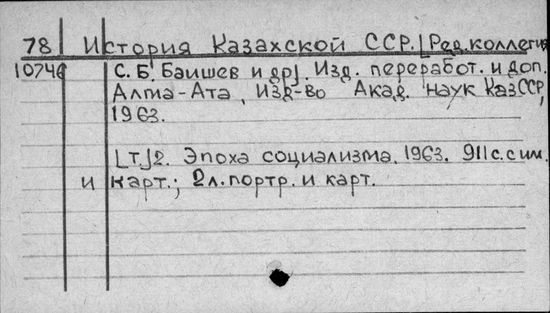 78 История Казахской ССР. [Ред.коллегия
10746 С. Б. Баишев и др]. Изд. переработ. и доп.
Алма-Ата, Изд-во Акад. наук КазССР,
1963.
[Т]2. Эпоха социализма. 1963. 911с. с илл.
и карт.; 2л. портр. и карт.